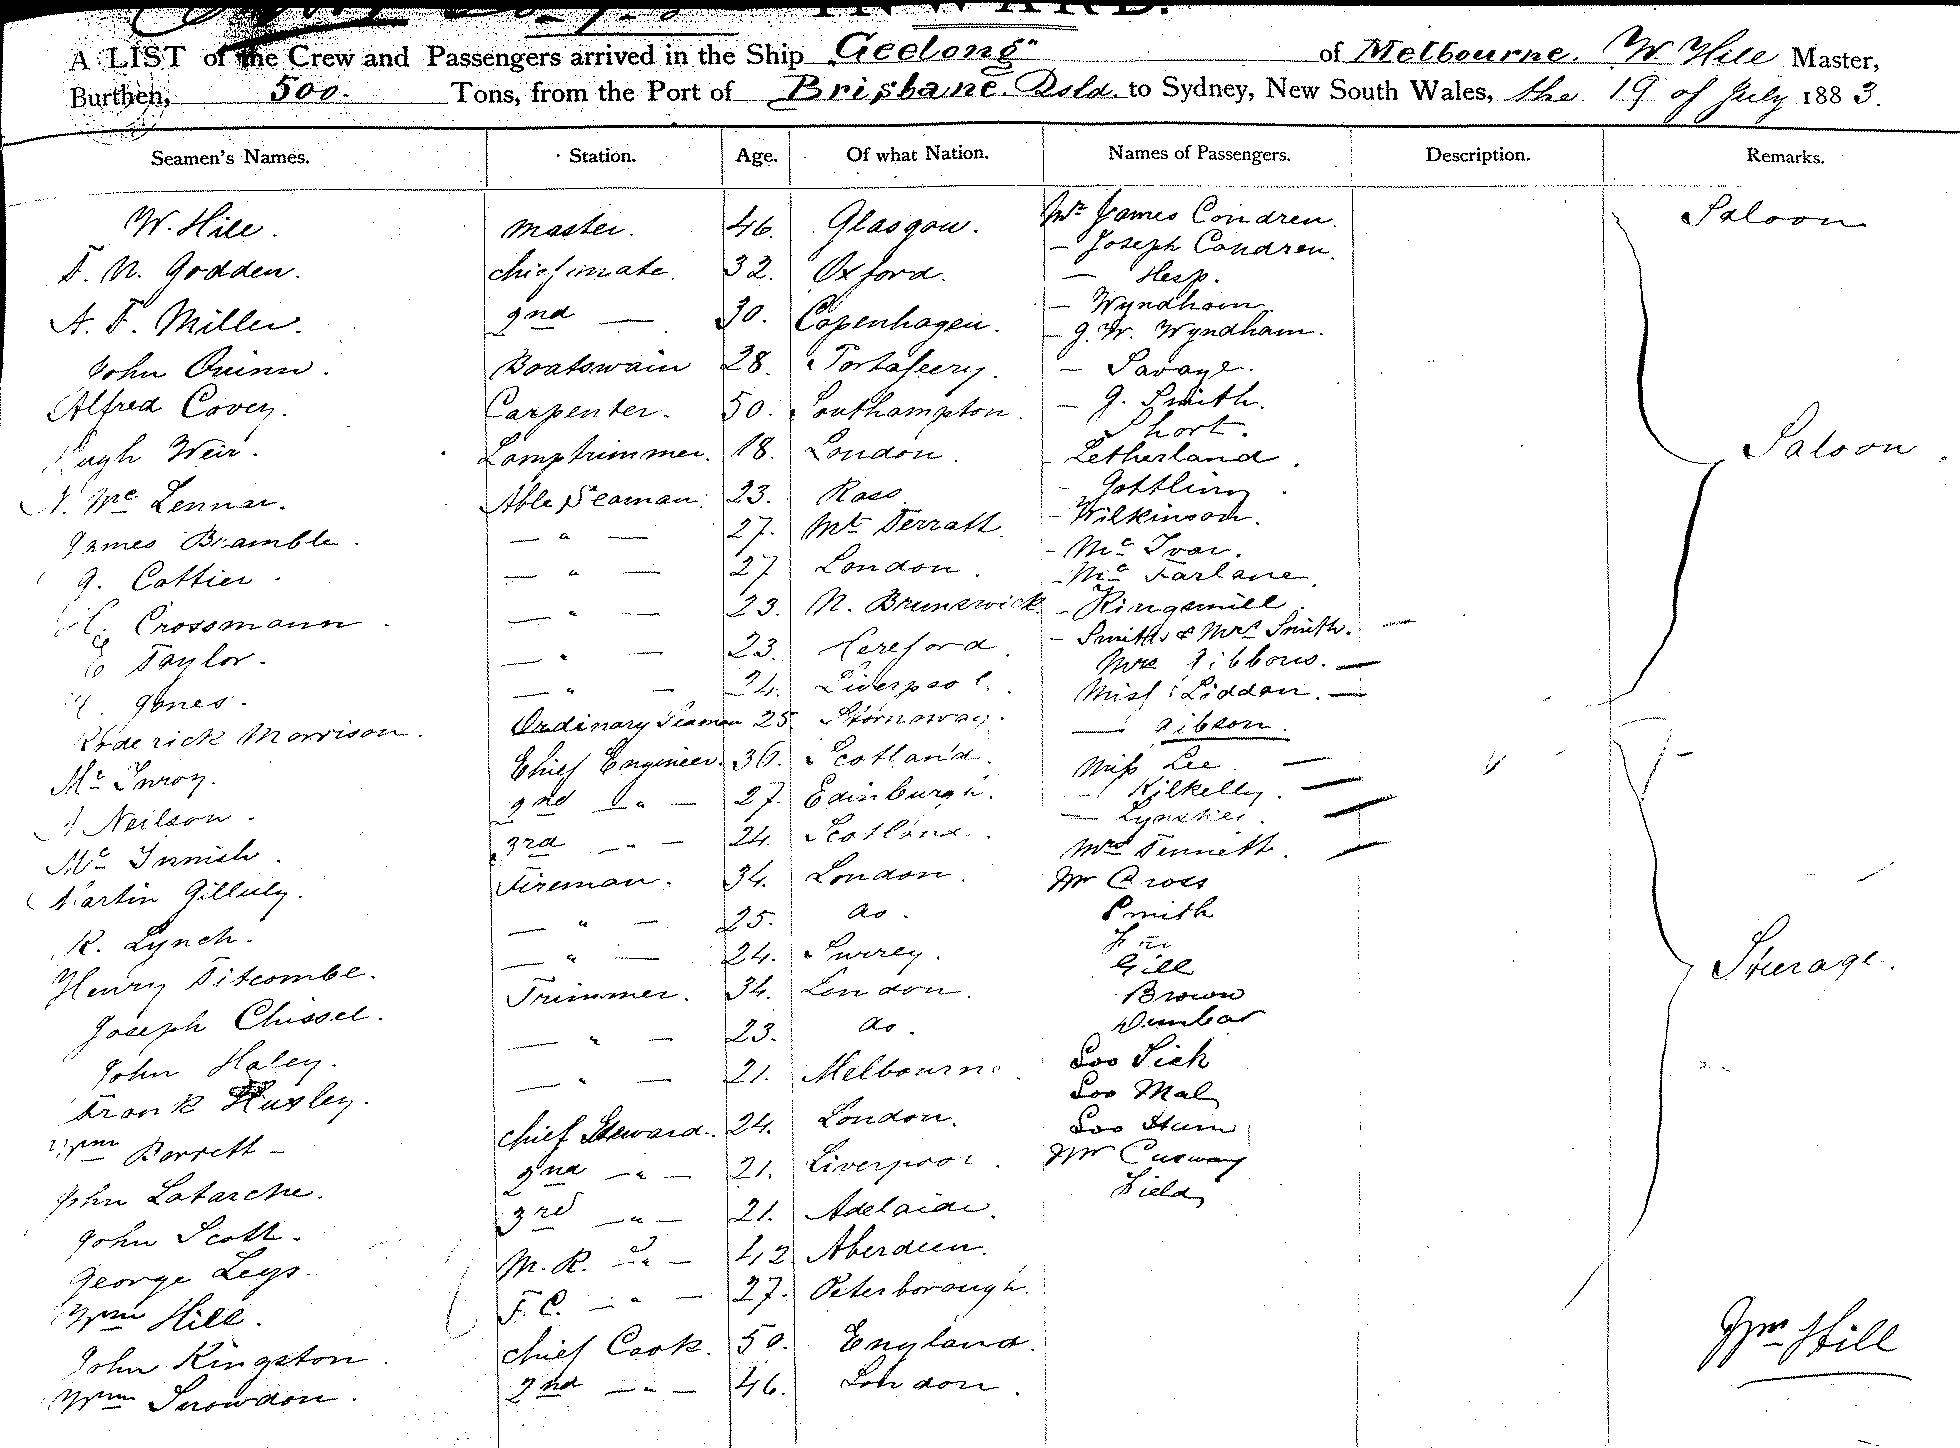 INWARD.
A LIST of the Crew and Passengers arrived in the Ship "Geelong" of Melbourne. W. Hill Master,
Burthen, 500. Tons, from the Port of Brisbane Qsld. to Sydney, New South Wales, the 19 of July 1883.
Seamen's Names. Station. Age. Of what Nation. Names of Passengers. Description. Remarks.
W. Hill. Master. 46. Glasgow. Mr James Condren. Saloon
F. N. Godden. Chief mate. 32. Oxford. — Joseph Condren.
— Hesp.
A. F. Miller. 2nd — 30. Copenhagen. — Wyndham
— G. W. Wyndham.
John Quinn. Boatswain 28. Portaferry. — Savage.
Alfred Covey. Carpenter. 50. Southampton. — G. Smith.
Short.
Hugh Weir. Lamptrimmer. 18. London. - Letherland. Saloon
A. Mc Lennan. Able Seaman. 23. Ross - Gottling.
James Bramble. — " — 27. Mt. Serratt. - Wilkinson.
- Mc Ivor.
G. Cottier. — " — 27 London. - Mc Farlane.
Crossmann — " — 23. N. Brunswick. - Kingsmill
E Taylor. — " — 23. Hereford. - Smith & Mrs Smith. —
Mrs Gibbons. —
Jones. — " — 24. Liverpool. Miss Liddon. —
Roderick Morrison. Ordinary Seaman 25 Stornoway. — Gibson.
Mc Inroy. Chief Engineer. 36. Scotland. Miss Lee —
Neilson. 2nd — " — 27. Edinburgh. — Kilkelly. —
Mc Innish. 3rd — " — 24. Scotland. —
Mrs Tennett. —
Martin Gilluly. Fireman. 34. London. Mr Cross
R. Lynch. — " — 25. do. Smith
Henry Titcombe. — " — 24. Surrey. Gill Steerage.
Joseph Chissel. Trimmer. 34. London. Brown
John Haley. — " — 23. do. Dunbar
Frank Huxley. — " — 21. Melbourne Loo Sich
Loo Mal
Wm Barrett - Chief Steward. 24. London. Loo Hum
John Latarche. 2nd — " — 21. Liverpool. Mr
Field
John Scott. 3rd — " — 21. Adelaide.
George Legs. M. R. — " — 42 Aberdeen.
Wm Hill. F. C. — " — 27. Peterborough.
John Kingston. Chief Cook. 50. England. Wm Hill
Wm Snowdon. 2nd — " — 46. London.